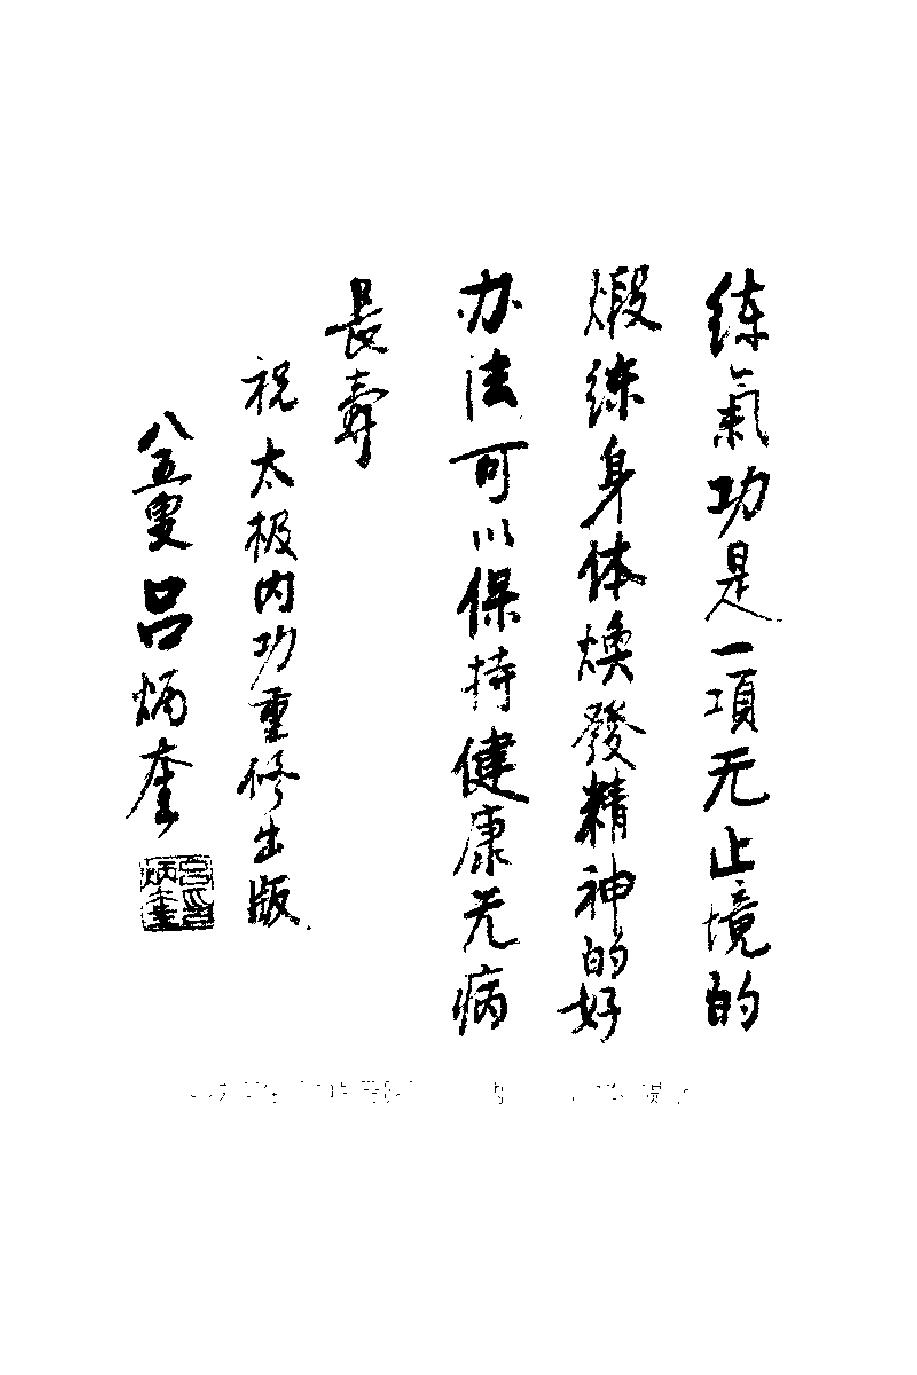 练氣功是一項无止境的
煅练身体焕發精神的好
办法可以保持健康无病
長寿
祝太极内功重修出版
八五叟 吕炳奎